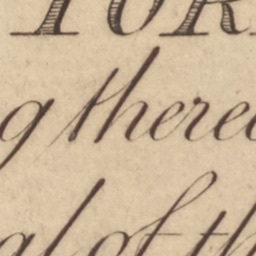 YORK
g there
al of th